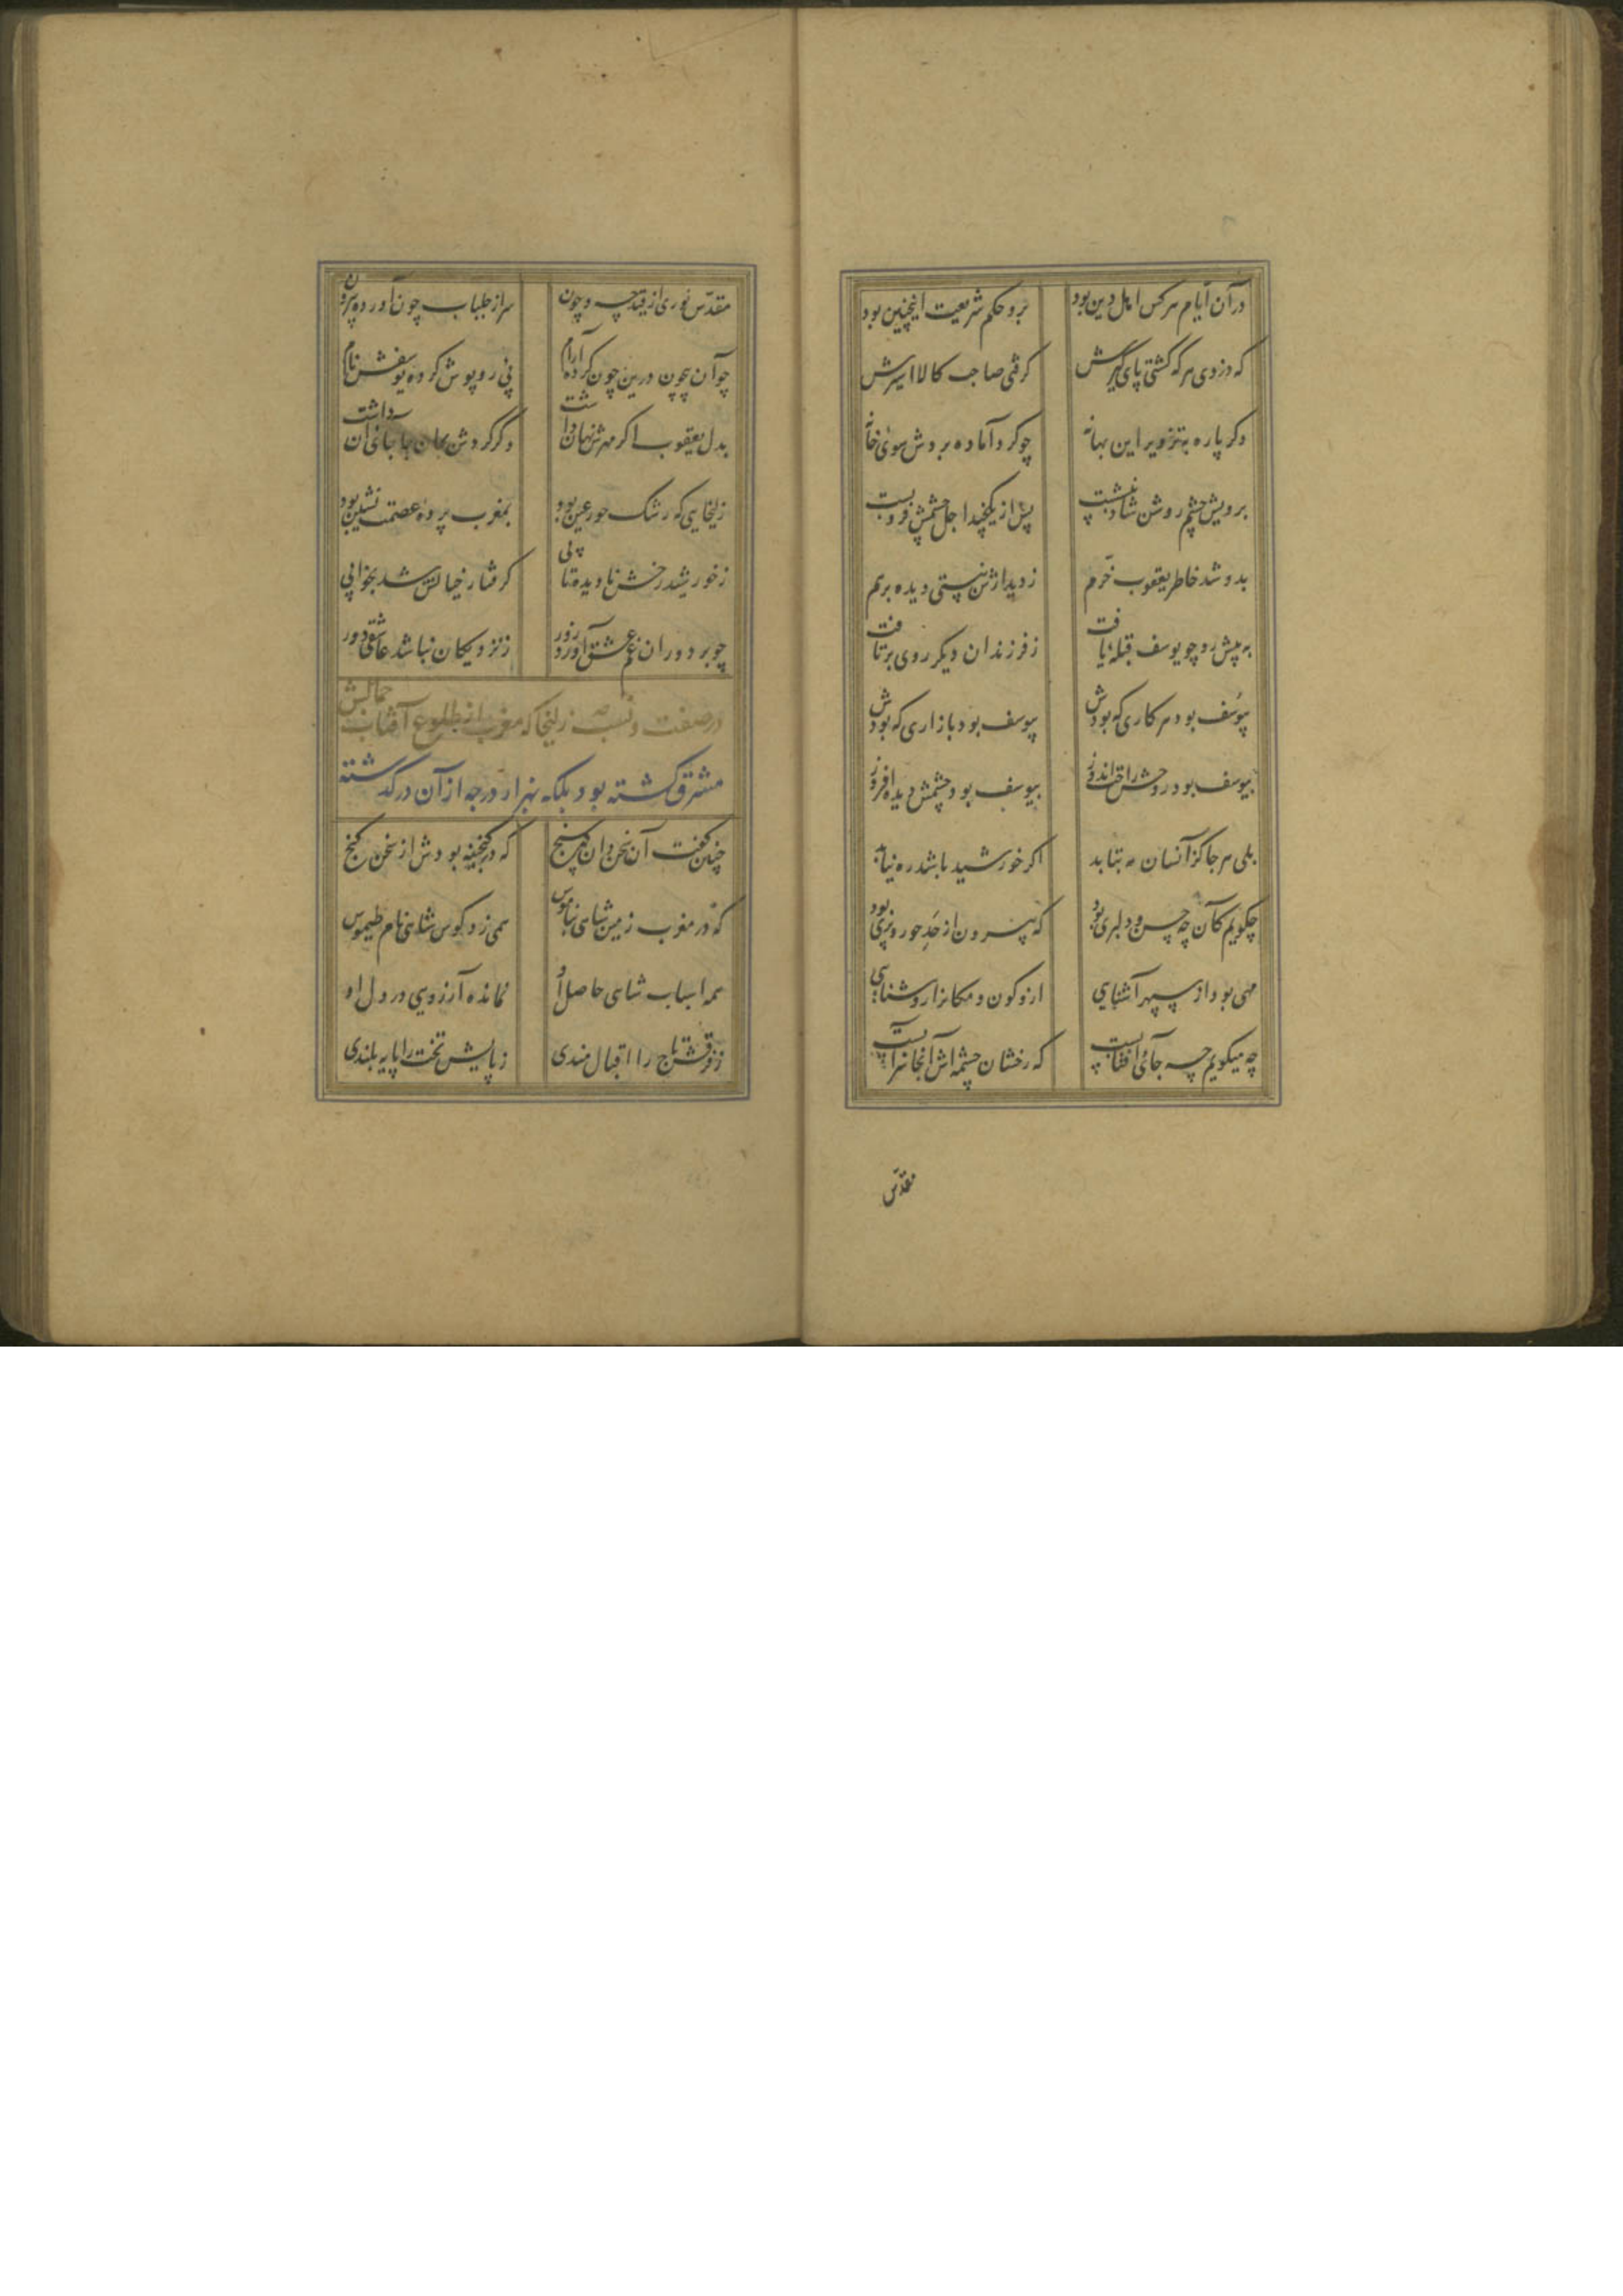 در آن ایام هر کس اهل دین بود برو حکم شریعت اینچنین بود
که دزدی هر که گشتی پای گیرش گرفتی صاحب کالا اسیرش
دکر پاره بتزویر این بهانه چو کرد آماده بردش سوی خانه
برویش چشم روشن شاد بنشست پس از یکچند اجل چشمش فروبست
بدو شد خاطر یعقوب خرم ز دیدارش نبستی دیده برهم
به پیش رو چو یوسف قبله یافت ز فرزندان دیکر روی برتافت
بیوسف بود هر کاری که بودش بیوسف بود بازاری که بودش
بیوسف بود روحش راحت اندوز بیوسف بود چشمش دیده افروز
بلی هر جا کز آنسان مه بتابد اکر خورشید باشد ره نیابد
چکویم کان چه حسن و دلبری بود که بیرون از حد حور و پری بود
مهی بود از سپهر آشنایی ازو کون و مکانرا روشنایی
چه میکویم چه جای آفتابست که رخشان چشمه اش آنجا سرابست
مقدس
مقدس نوری از قید چه و چون سر از جلباب چون آورده بیرون
چو آن بیچون درین چون کرده آرام پی روپوش کرده یوسفش نام
بدل یعقوب اکر مهرش نهان داشت وکر کردش بجان جا جای آن داشت
زلیخایی که رشک حور عین بود بمغرب پرده عصمت نشین بود
ز خورشید رخش نادیده تابی کرفتار خیالش شد بخوابی
چو بر دوران غم عشق آورد زور ز نزدیکان نباشد عاشقی دور
در صفت و نسب زلیخا که مغرب از طلوع آفتاب جمالش
مشرق کشته بود بلکه بهزار درجه از آن درکذشته
چنین کفت آن سخن دان سخن سنج که در کنجینه بودش از سخن کنج
که در مغرب زمین شاهی بناموس همی زد کوس شاهی نام طیموس
همه اسباب شاهی حاصل او نمانده آرزویی در دل او
ز فرقش تاج را اقبال مندی ز پایش تخت را پایه بلندی